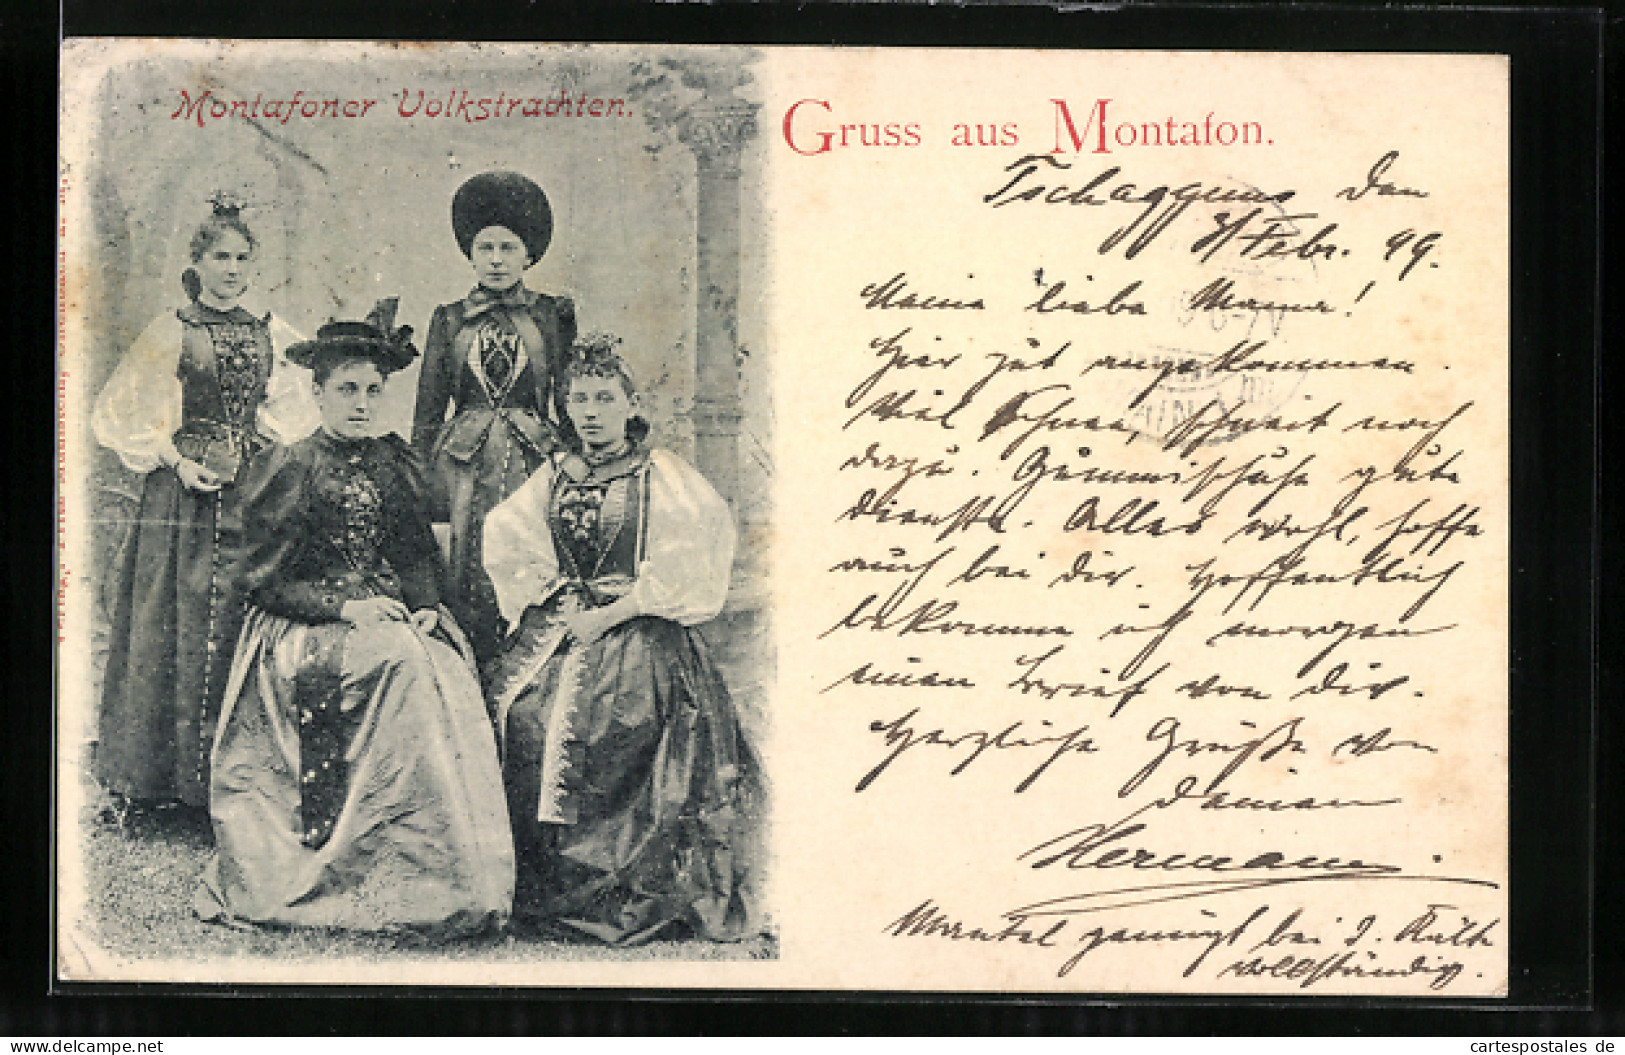 Montafoner Volkstrachten.
Gruss aus Montafon.
Tschagguns den
Febr. 99.
Meine liebe Mama!
Hier gut angekommen.
Viel Schnee, schneit noch
dazu. Gummischuhe gute
Dienste. Alles wohl, hoffe
auch bei dir. Hoffentlich
bekomme ich morgen
einen Brief von dir.
Herzliche Grüße von
deinem
Hermann.
Mantel genügt bei d. Kälte
vollständig.
www.delcampe.net
cartespostales de